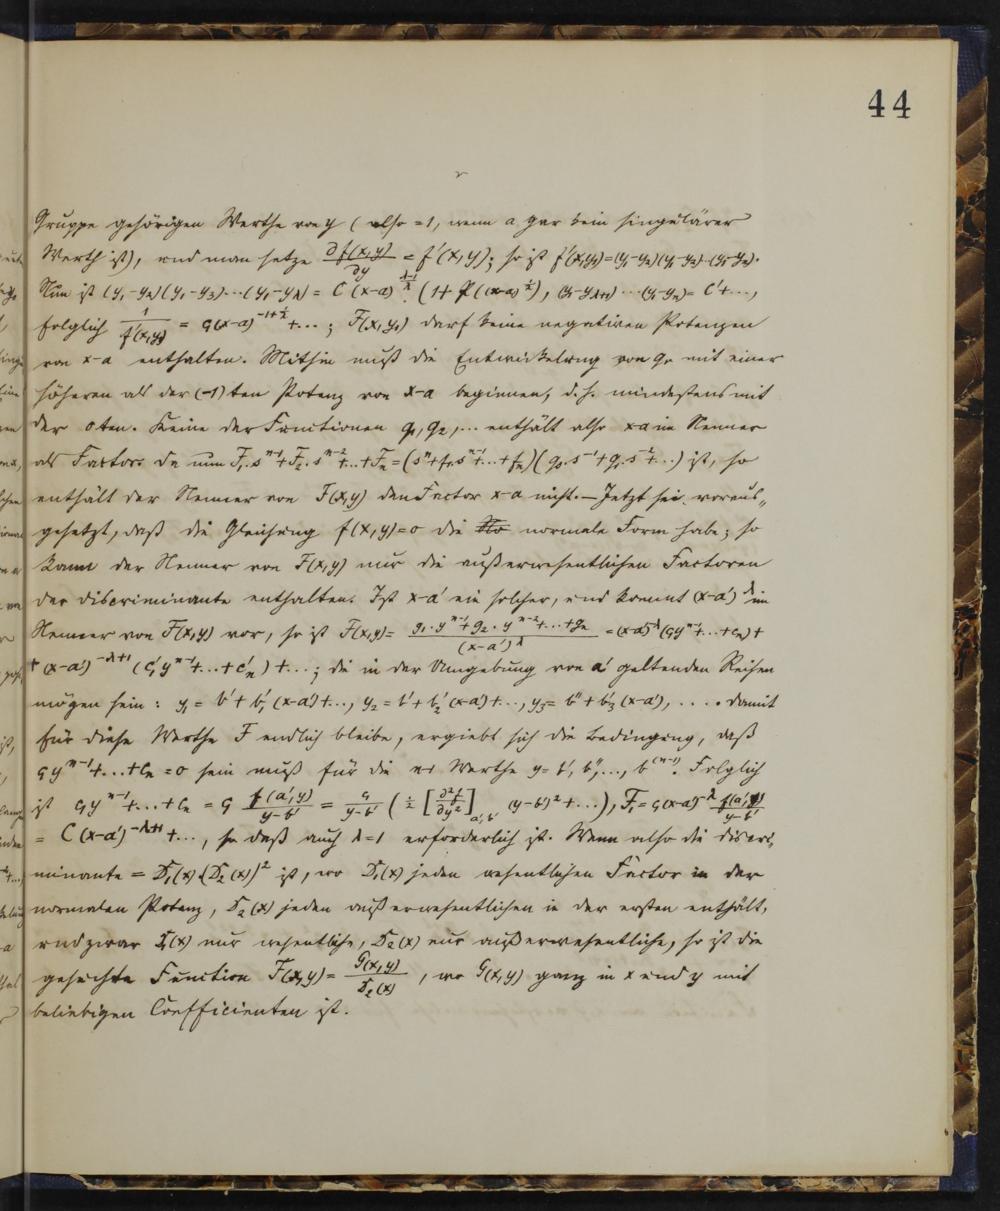 44
Gruppe gehörigen Werthe von y (also =1, wenn a gar kein singulärer
Werth ist), und man setze ∂f(x,y)/∂y = f'(x,y); so ist f'(x,y₁)=(y₁-y₂)(y₁-y₃)...(y₁-yₙ).
Nun ist (y₁-y₂)(y₁-y₃)...(y₁-y_λ) = C(x-a)^{(λ-1)/λ} (1+P((x-a)^{1/λ})), (y₁-y_{λ+1})...(y₁-yₙ) = C'+...,
folglich 1/f'(x,y₁) = c₁(x-a)^{-1+1/λ}+...; F(x,y₁) darf keine negativen Potenzen
von x-a enthalten. Mithin muß die Entwickelung von g₀ mit einer
höheren als der (-1)ten Potenz von x-a beginnen, d.h. mindestens mit
der 0ten. Keine der Functionen g₁, g₂,... enthält also x-a im Nenner
als Factor. Da nun F₁.s^{n-1}+F₂.s^{n-2}+...+Fₙ=(sⁿ+f₁.s^{n-1}+...+fₙ)(g₀.s^{-1}+g₁.s^{-2}+...) ist, so
enthält der Nenner von F(x,y) den Factor x-a nicht.— Jetzt sei voraus„
gesetzt, daß die Gleichung f(x,y)=0 die normale Form habe; so
kann der Nenner von F(x,y) nur die außerwesentlichen Factoren
der Discriminante enthalten. Ist x-a' ein solcher, und kommt (x-a')^λ im
Nenner von F(x,y) vor, so ist F(x,y)= (g₁.y^{n-1}+g₂.y^{n-2}+...+gₙ)/(x-a')^λ = (x-a')^{-λ}(c₁y^{n-1}+...+cₙ)+
+(x-a')^{-λ+1}(c₁'y^{n-1}+...+cₙ')+...; die in der Umgebung von a' geltenden Reihen
mögen sein: y₁= b'+b₁'(x-a')+..., y₂= b'+b₂'(x-a')+..., y₃= b''+b₃'(x-a'), .... damit
für diese Werthe F endlich bleibe, ergiebt sich die Bedingung, daß
c₁y^{n-1}+...+cₙ=0 sein muß für die n-1 Werthe y= b', b'',..., b^{(n-1)}. Folglich
ist c₁y^{n-1}+...+cₙ = c₁ f(a',y)/(y-b') = c₁/(y-b') (½[∂²f/∂y²]_{a',b'} (y-b')²+...), F₁= c₁(x-a')^{-λ} f(a',y)/(y-b')
= C(x-a')^{-λ+1}+..., so daß auch λ=1 erforderlich ist. Wenn also die Discri„
minante = D₁(x).(D₂(x))² ist, wo D₁(x) jeden wesentlichen Factor in der
normalen Potenz, D₂(x) jeden außerwesentlichen in der ersten enthält,
und zwar D₁(x) nur wesentliche, D₂(x) nur außerwesentliche, so ist die
gesuchte Function F(x,y)= G(x,y)/D₂(x), wo G(x,y) ganz in x und y mit
beliebigen Coefficienten ist.